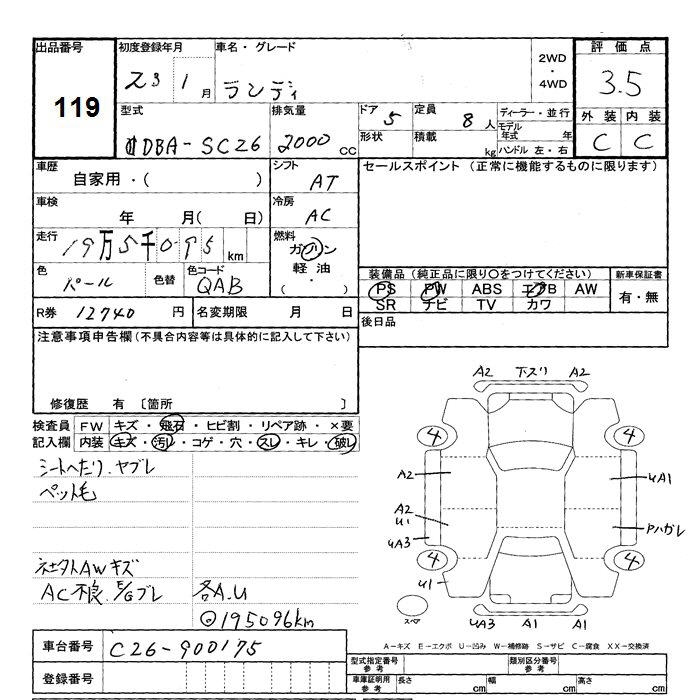 出品番号 初度登録年月 車名・グレード 2WD・4WD 評価点
119 23 1月 ランディ 3.5
型式 排気量 ドア 5 定員 8人 ディーラー・並行 外装 内装
DBA-SC26 2000cc 形状 積載 kg モデル年式 年 ハンドル 左・右 C C
車歴 シフト セールスポイント (正常に機能するものに限ります)
自家用・( ) AT
車検 冷房
年 月( 日) AC
走行 燃料
19万5千095km ガソリン
色 色替 色コード 軽油 装備品 (純正品に限り○をつけてください) 新車保証書
パール QAB ( ・ ) PS PW ABS エアB AW 有・無
SR ナビ TV カワ
R券 12740円 名変期限 月 日 後日品
注意事項申告欄 (不具合内容等は具体的に記入して下さい)
修復歴 有 〔箇所 〕
検査員 FW キズ・飛石・ヒビ割・リペア跡・×要
記入欄 内装 キズ・汚れ・コゲ・穴・スレ・キレ・破レ
シートヘたり、ヤブレ
ペット毛
AWキズ
AC不良、E/Gブレ 各A.U
195096km
A2 下スリ A2
4 4
A2 UA1
A2
U1 Pハガレ
UA3
4 4
U1
スペア UA3 A1 A1
A-キズ E-エクボ U-凹み W-補修跡 S-サビ C-腐食 XX-交換済
車台番号 C26-900175 型式指定番号 参考 類別区分番号 参考
登録番号 車庫証明用 参考 長さ cm 幅 cm 高さ cm